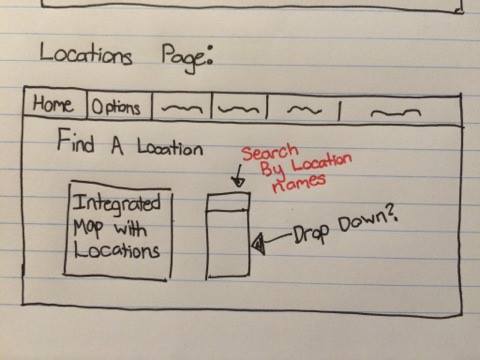 Locations Page:
Home Options
Find A Location
Search
By Location
names
Integrated
Map with
Locations
Drop Down?